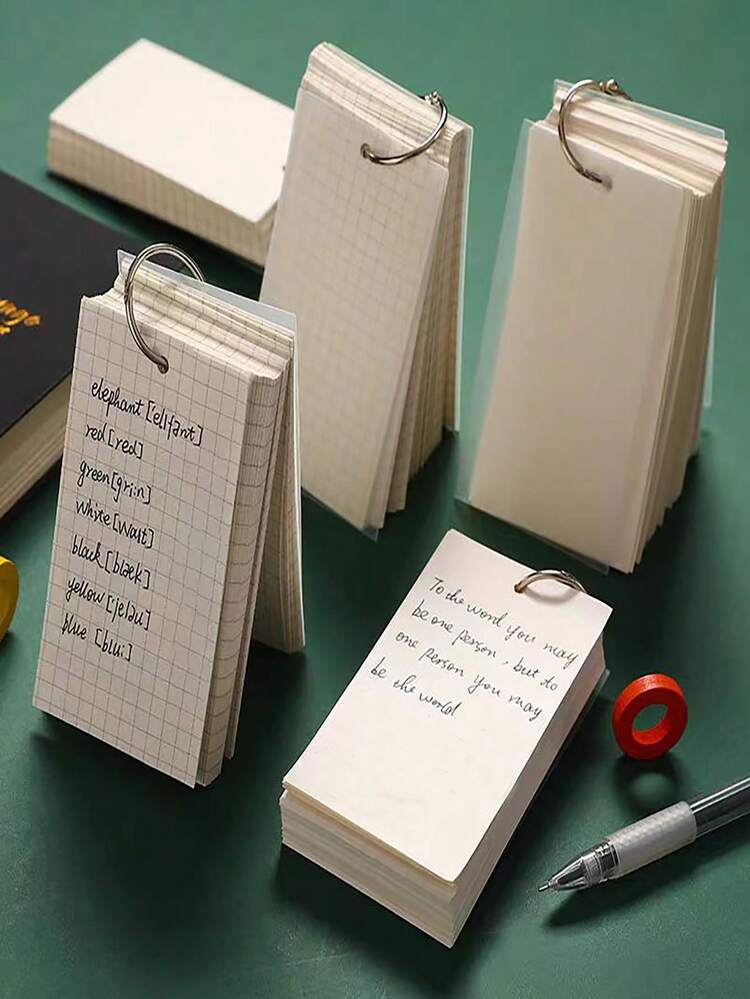 elephant ['elIfənt]
red [red]
green [gri:n]
white [waIt]
black [blæk]
yellow [jeləu]
blue [blu:]
To the word you may
be one person , but to
one person you may
be the world